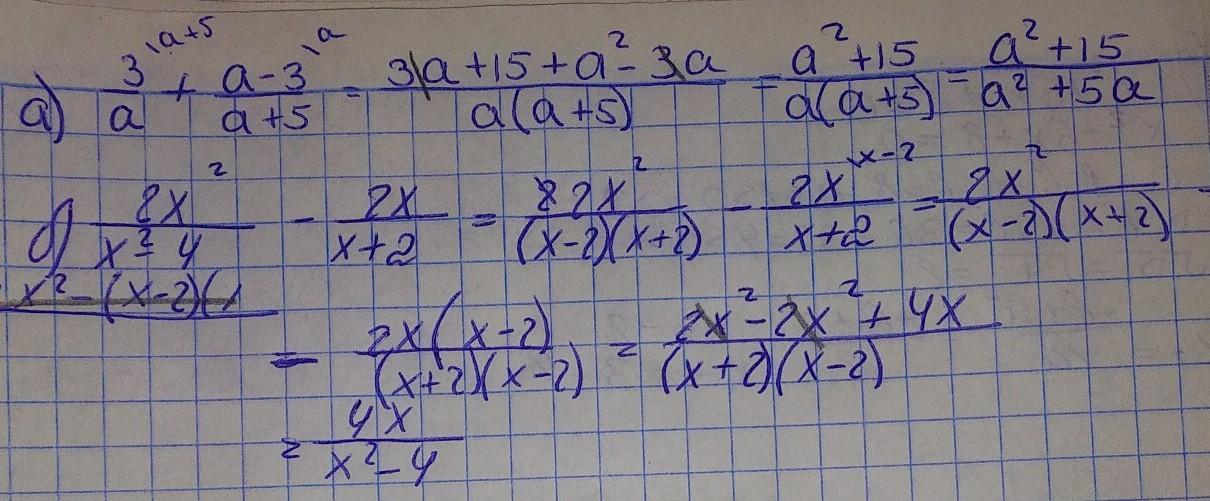 а) 3^{\a+5}/a + (a-3)^{\a}/(a+5) = (3a+15+a²-3a)/(a(a+5)) = (a²+15)/(a(a+5)) = (a²+15)/(a²+5a)
б) 2x²/(x²-4) - 2x/(x+2) = 2x²/((x-2)(x+2)) - 2x^{\x-2}/(x+2) = 2x²/((x-2)(x+2)) -
x²-(x-2)(
- 2x(x-2)/((x+2)(x-2)) = (2x²-2x²+4x)/((x+2)(x-2))
= 4x/(x²-4)